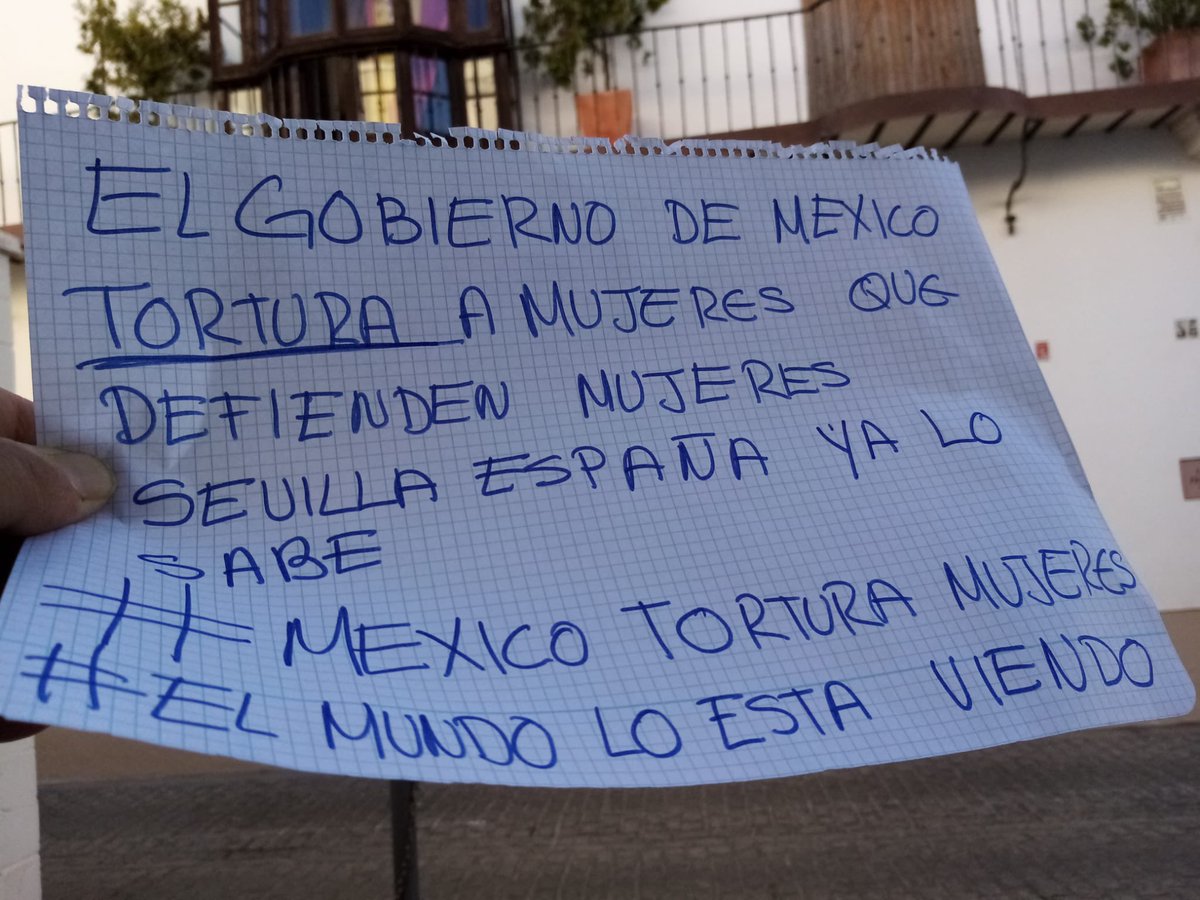 EL GOBIERNO DE MEXICO
TORTURA A MUJERES QUE
DEFIENDEN MUJERES
SEVILLA ESPAÑA YA LO
SABE
# MEXICO TORTURA MUJERES
# EL MUNDO LO ESTA VIENDO